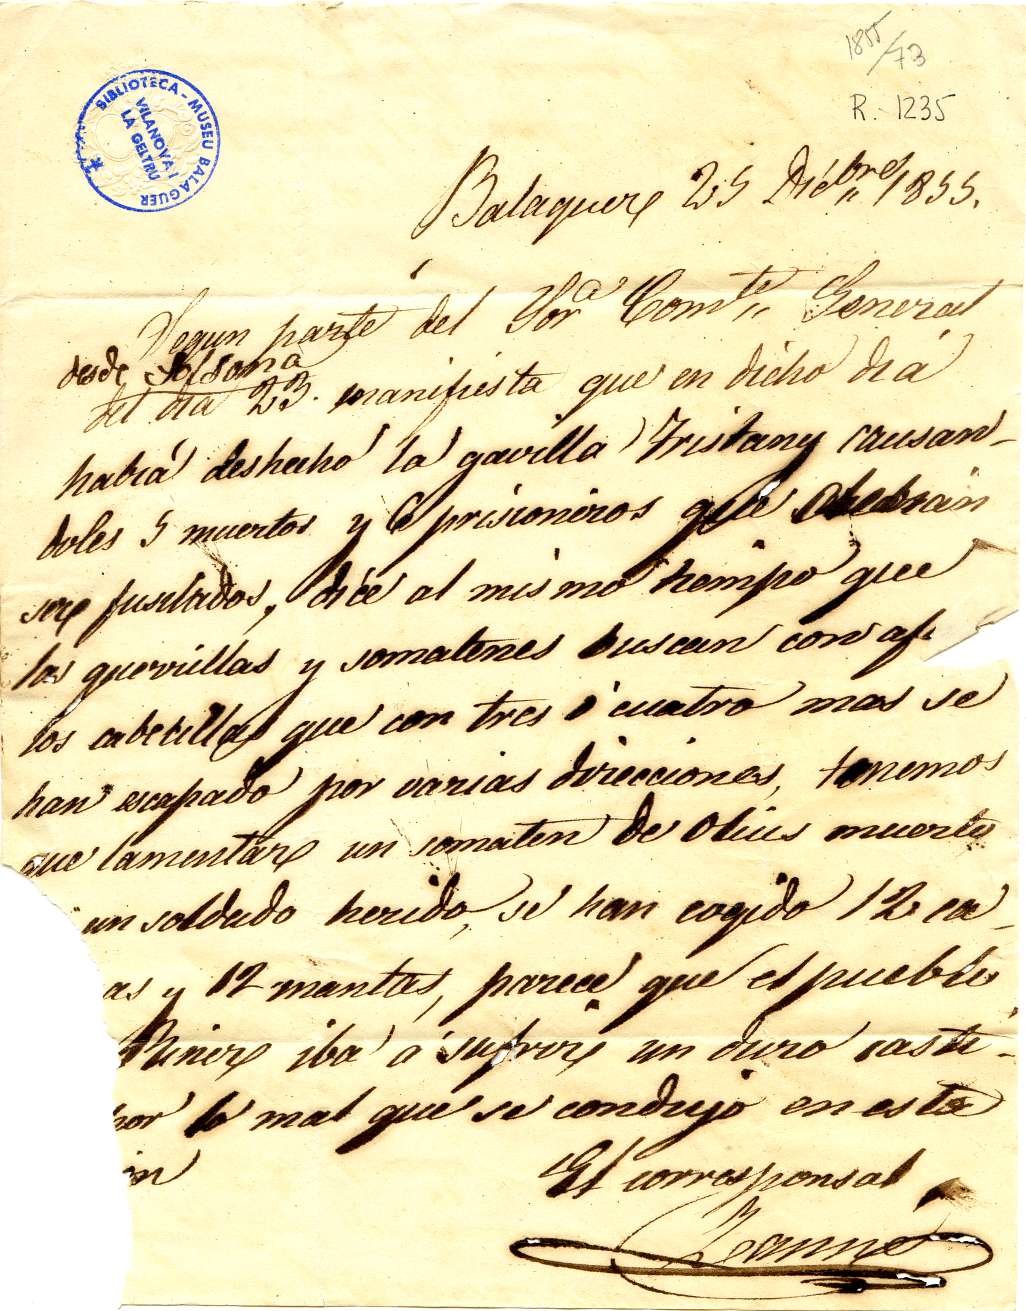 1855/73
R. 1235
BIBLIOTECA - MUSEU BALAGUER
VILANOVA I
LA GELTRU
Balaguer 25 Dicbre 1855.
Segun parte del Sor Comte General
desde Solsona
del dia 23. manifiesta que en dicho dia
habiá deshechó la gavilla Tristany causan-
doles 5 muertos y 6 prisioneros que
ser fusilados, dice al mismo tiempo que
las guerrillas y somatenes buscan con af
los cabecillas que con tres ó cuatro mas se
han escapado por varias direcciones, tenemos
que lamentar un somaten de Olius muerto
un soldado herido, se han cogido 12 ca-
as y 12 mantas, parece que el pueblo
Riner iba á sufrir un duro casti-
por lo mal que se condujó en esta
on
El corresponsal